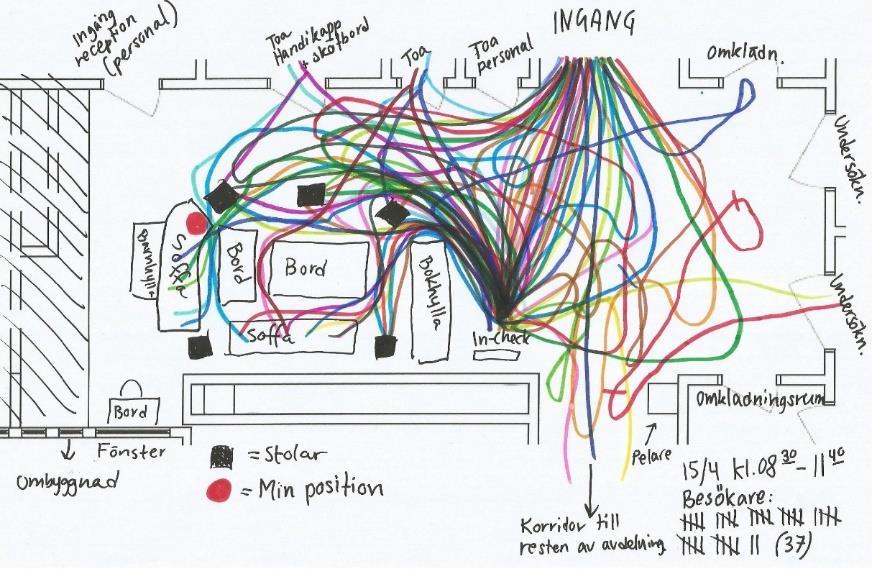 Ingång
reception
(personal)
Toa
Handikapp
+ skötbord
Toa
Toa
personal
INGANG
Omklädn.
Undersökn.
Soffa
Bord
Bord
Bokhylla
Soffa
In-check
Undersökn.
Omklädningsrum
Bord
Fönster
Ombyggnad
= Stolar
= Min position
Pelare
Korridor till
resten av avdelning
15/4 kl. 08 30 - 11 40
Besökare:
(37)